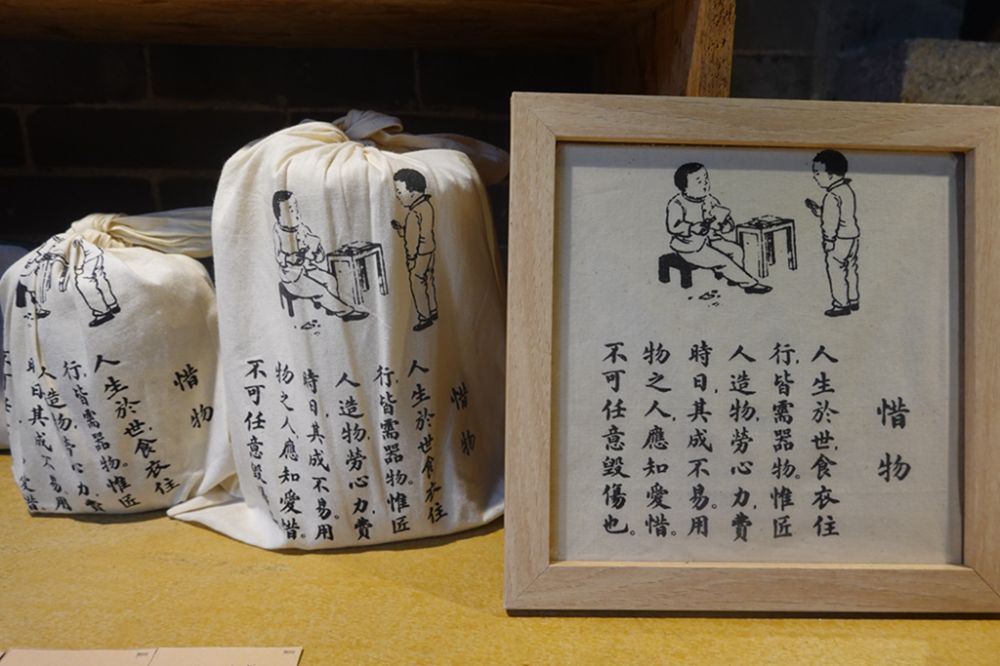 惜物
人生於世,食衣住
行,皆需器物。惟匠
人造物,勞心力,費
時日,其成不易。用
物之人,應知愛惜。
不可任意毀傷也。
惜物
人生於世,食衣住
行,皆需器物。惟匠
人造物,勞心力,費
時日,其成不易。用
物之人,應知愛惜。
不可任意毀
惜物
人生於世,食衣住
行,皆需器物。惟匠
人造物,勞心力,費
時日,其成不易。用
愛惜。